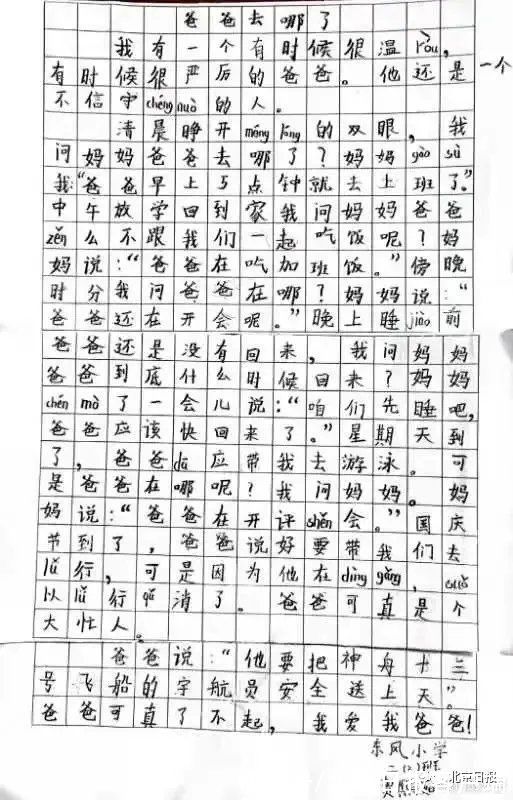 爸爸去哪了
我有一个有时候很温róu,
有时候很严厉的爸爸。他还是一个
不信守chéng nuò的人。
清晨睁开méng lóng的双眼,我
问妈妈爸爸去哪了?妈妈gào sù
我:"爸爸早上5点钟就去上班了。"
中午放学回到家我问妈妈爸爸
zěn么不跟我们一起吃饭呢?妈
妈说:"爸爸在吃加班饭。"傍晚
时分我问爸爸在哪?妈妈说:"
爸爸还在开会呢。"晚上睡jiào前
爸爸还是没有回来,我问妈妈
爸爸到底什么时候回来?妈妈
chén mò了一会儿说:"咱们先睡吧,
爸爸应该快回来了。"星期天到
了,爸爸dā应带我去游泳。可
是爸爸在哪呢?我问妈妈。妈
妈说:"爸爸在开评shěn会。"国庆
节到了,爸爸说好要带我们去
lǚ行,可是因为他在dìng gǎng,suǒ
以lǚ行qǔ消了。爸爸可真是个
大忙人。
爸爸说:"他要把神舟十三
号飞船的宇航员安全送上天。"
爸爸可真了不起,我爱我爸爸!
东风小学
二(2)班
北京日报